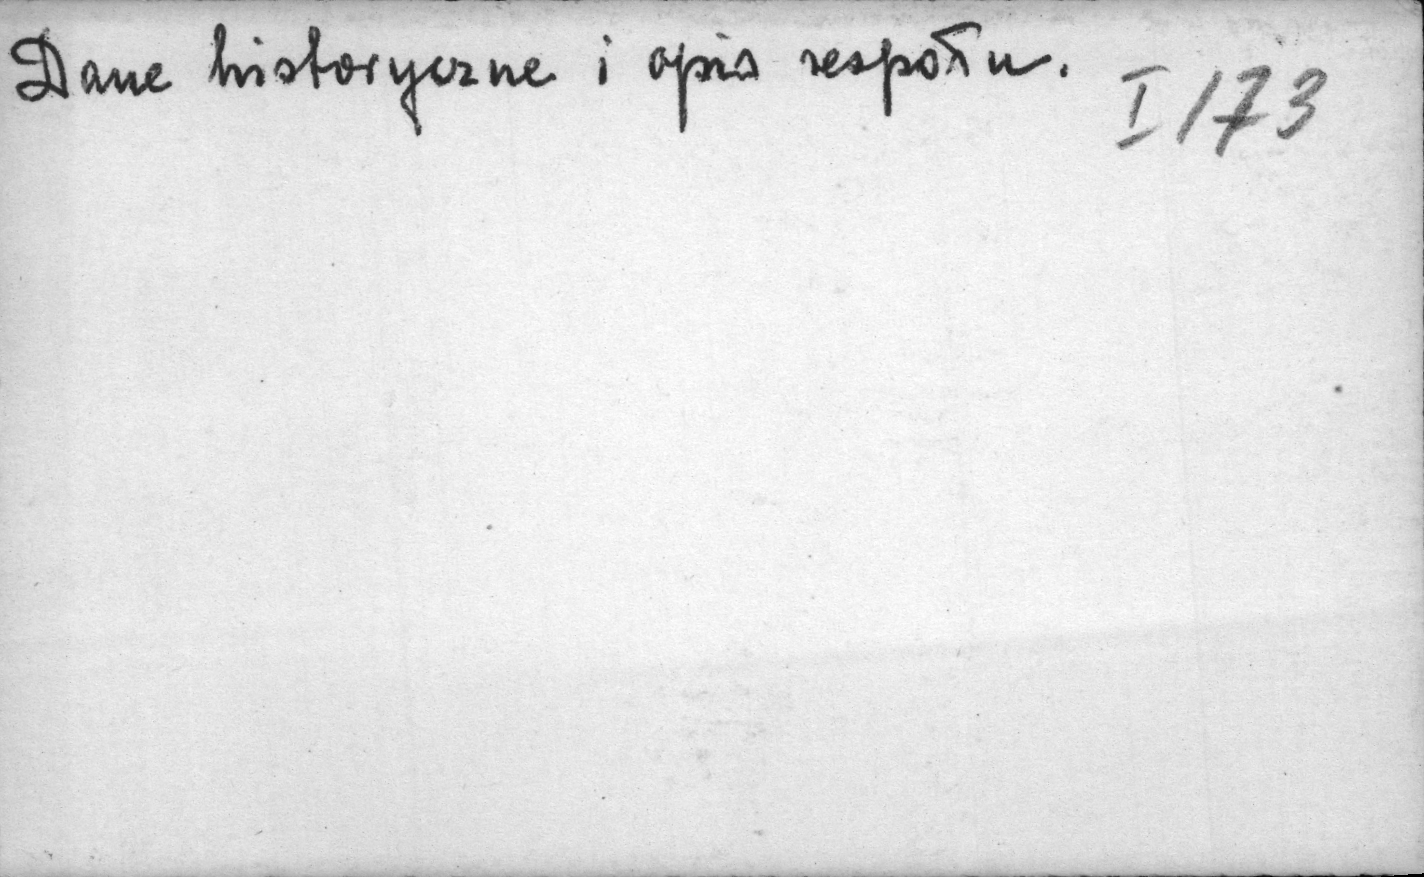 Dane historyczne i opis zespołu. I/73